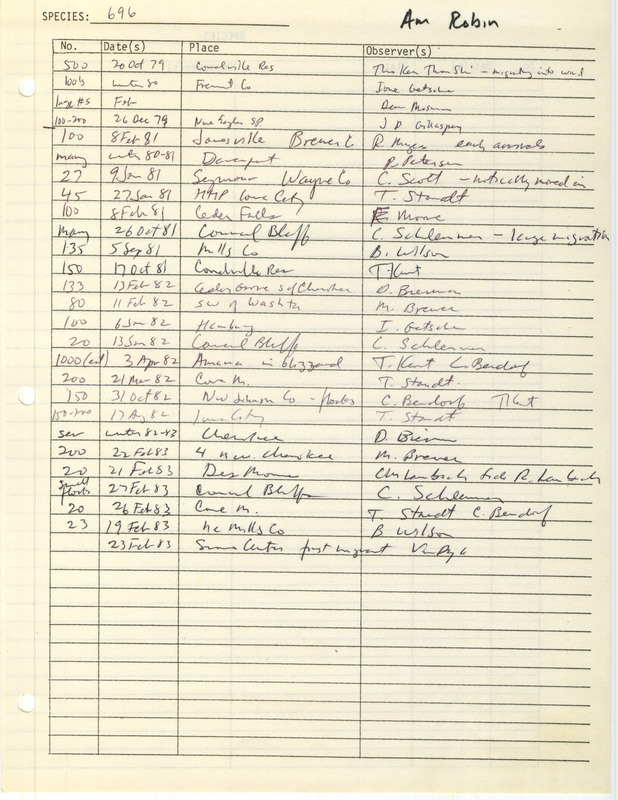 SPECIES: 696 Am Robin
No. Date(s) Place Observer(s)
500 20 Oct 79 Coralville Res - migrating into wind
100s winter 80 Fremont Co Ione Getscher
large #s Feb Dean Mosman
100-200 26 Dec 79 Nine Eagles SP J D Gillaspey
100 8 Feb 81 Janesville Bremer Co R Myers early arrivals
many winter 80-81 Davenport P. Petersen
27 9 Jan 81 Seymour Wayne Co C. Scott - moved in
45 27 Jan 81 HHP Iowa City T. Staudt
100 8 Feb 81 Cedar Falls Moore
many 26 Oct 81 Council Bluffs C. Schlemmer - large migration
135 5 Sep 81 Mills Co B. Wilson
150 17 Oct 81 Coralville Res T. Kent
133 13 Feb 82 Cedar Grove s of Cherokee D. Bierman
80 11 Feb 82 sw of Washta M. Brewer
100 6 Jan 82 Hamburg I. Getscher
20 13 Jan 82 Council Bluffs C. Schlemmer
1000 (est) 3 Apr 82 Amana in blizzard T. Kent C. Bendorf
200 21 Mar 82 Cone M. T. Staudt.
150 31 Oct 82 New Johnson Co - flocks C. Bendorf T Kent
150-200 17 Aug 82 Iowa City T. Staudt
sev winter 82-83 Cherokee D. Bierman
200 22 Feb 83 4 nw. Cherokee M. Brewer
20 21 Feb 83 Des Moines
small flocks 27 Feb 83 Council Bluffs C. Schlemmer
20 26 Feb 83 Cone M. T. Staudt C. Bendorf
23 19 Feb 83 ne Mills Co B Wilson
23 Feb 83 Sioux Center first migrant Van Dyk